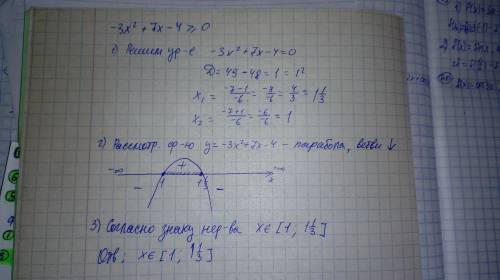 -3x² + 7x - 4 ≥ 0
1) Решим ур-е -3x² + 7x - 4 = 0
D = 49 - 48 = 1 = 1²
x₁ = (-7-1)/-6 = -8/-6 = 4/3 = 1 1/3
x₂ = (-7+1)/-6 = -6/-6 = 1
2) Рассмотр. ф-ю y = -3x² + 7x - 4 - парабола, ветви ↓
-∞ + +∞
1 1 1/3 x
- -
3) Согласно знаку нер-ва x ∈ [1; 1 1/3]
Отв: x ∈ [1; 1 1/3]